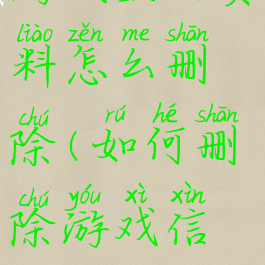 liào zěn me shān
料怎么删
chú rú hé shān
除(如何删
chú yóu xì xìn
除游戏信